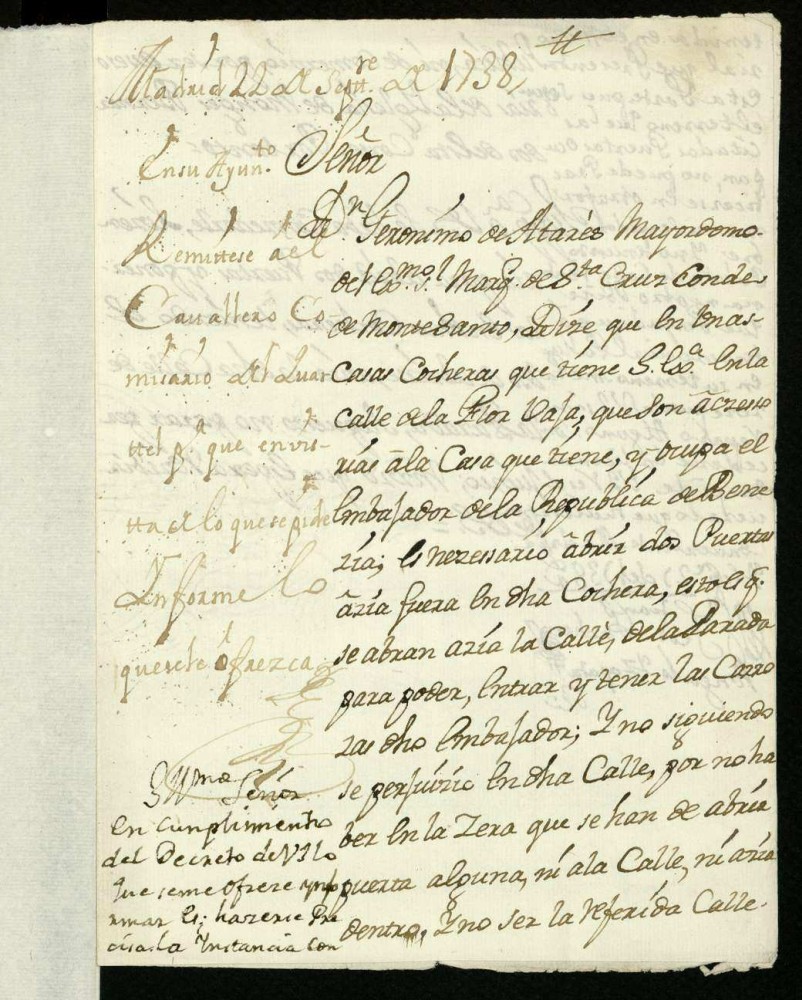 Madrid 22 de Sepre. de 1738,
En su Ayunto.
Remitese al
Cavallero Co-
misario del quar
ttel pa. que en vis-
tta de lo que se pide
Ynforme lo
que se le ofrezca
Señor
Dn. Geronimo de Atarès Mayordomo
del Exmo. Sl. Marq. de Sta. Cruz Conde
de MonteSanto, Dize que en Unas
Casas Cocheras que tiene S. Exa. En la
Calle de la Flor Vaja, que son acesso
rias â la Casa que tiene, y ocupa el
Embajador de la Republica de Bene
zia; es nezessario âbrir dos Puertas
âzia fuera En dha Cochera, esto es q.
se abran azia la Calle, de la Parada
para poder, Entrar y tener las Carro
zas dho Embajador; Y no siguiendo
se perjuizio En dha Calle, por no ha
ber En la Zera que se han de abrir
puerta alguna, ni a la Calle, ni azia
dentro, Y no ser la referida Calle
Yllmo Señor
En cunplimiento
del Decreto de V.I. lo
que se me ofreze ynfo
rmar Es; hazerse Pre
cisa la Ynstancia con